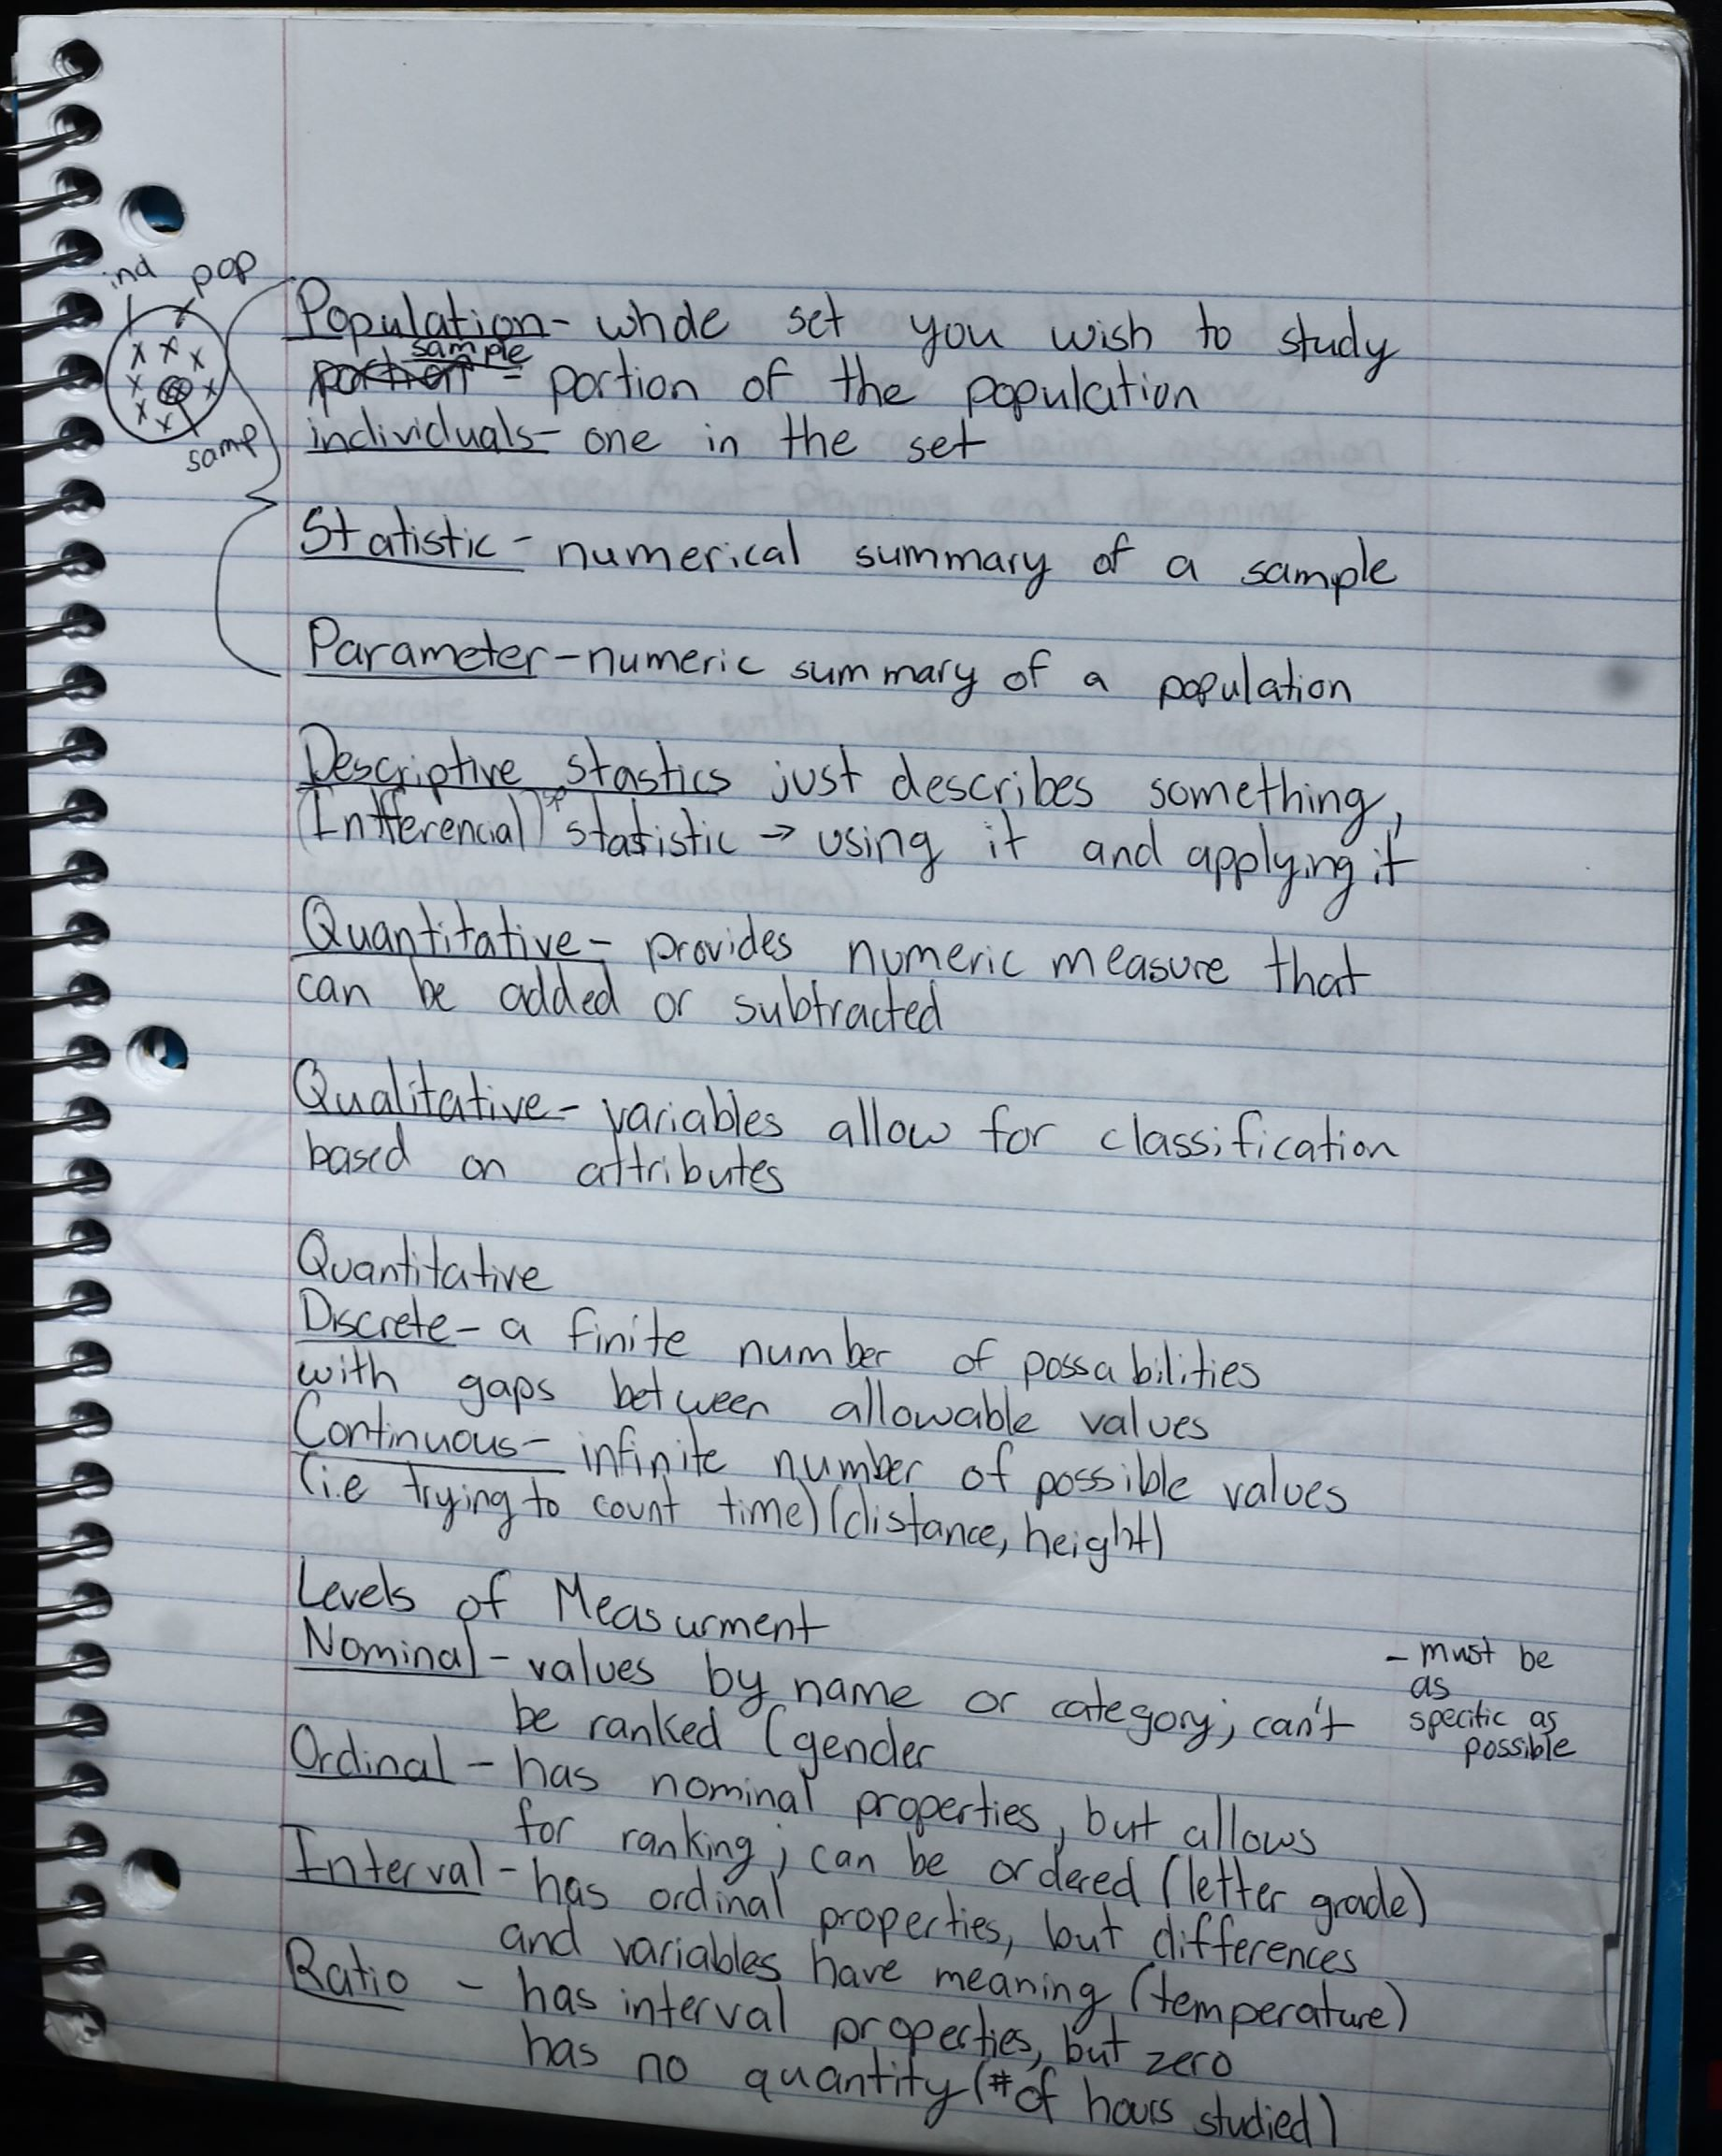 ind pop
Population - whole set you wish to study
sample
portion - portion of the population
individuals - one in the set
samp
Statistic - numerical summary of a sample
Parameter - numeric summary of a population
Descriptive stastics just describes something,
(Intferencial) statistic → using it and applying it
Quantitative - provides numeric measure that
can be added or subtracted
Qualitative - variables allow for classification
based on attributes
Quantitative
Discrete - a finite number of possabilities
with gaps between allowable values
Continuous - infinite number of possible values
(i.e trying to count time) (distance, height)
Levels of Measurment
Nominal - values by name or category; can't
be ranked (gender
- must be
as
specific as
possible
Ordinal - has nominal properties, but allows
for ranking; can be ordered (letter grade)
Interval - has ordinal properties, but differences
and variables have meaning (temperature)
Ratio - has interval properties, but zero
has no quantity (# of hours studied)